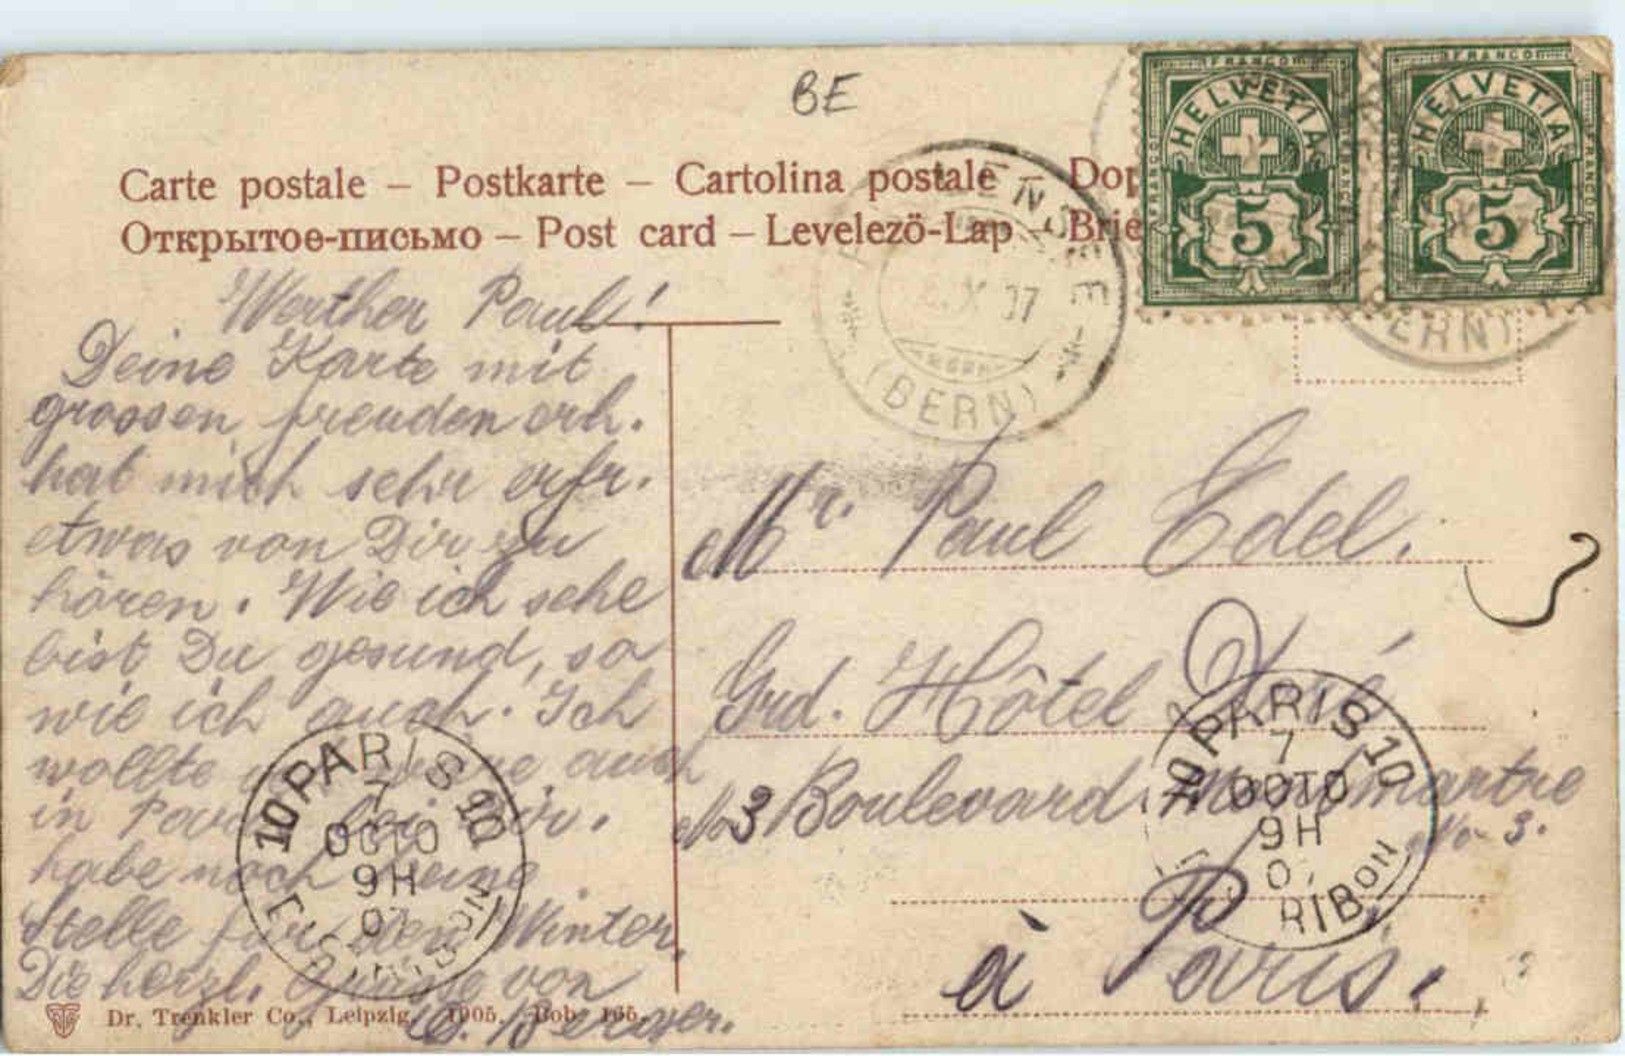 BE
Carte postale – Postkarte – Cartolina postale – Dop
Открытое-письмо – Post card – Levelezö-Lap – Brie
FRANCO
HELVETIA
5
FRANCO
HELVETIA
5
8.X.07
(BERN)
BERN)
Werther Paul!
Deine Karte mit
grossen freuden erh.
hat mich sehr erfr.
etwas von Dir zu
hören. Wie ich sehe
bist Du gesund, so
wie ich auch. Ich
wollte auch
in Paris bei Dir.
habe noch keine
Stelle für den Winter.
Die herzl. Grüsse von
Mr. Paul Edel.
Grd. Hôtel Doré
No 3 Boulevard Montmartre
No 3.
à Paris.
10 PARIS 10
7
OCTO
9H
07
10 PARIS 10
7
OCTO
9H
0
RIBON
Dr. Trenkler Co., Leipzig. 1905.